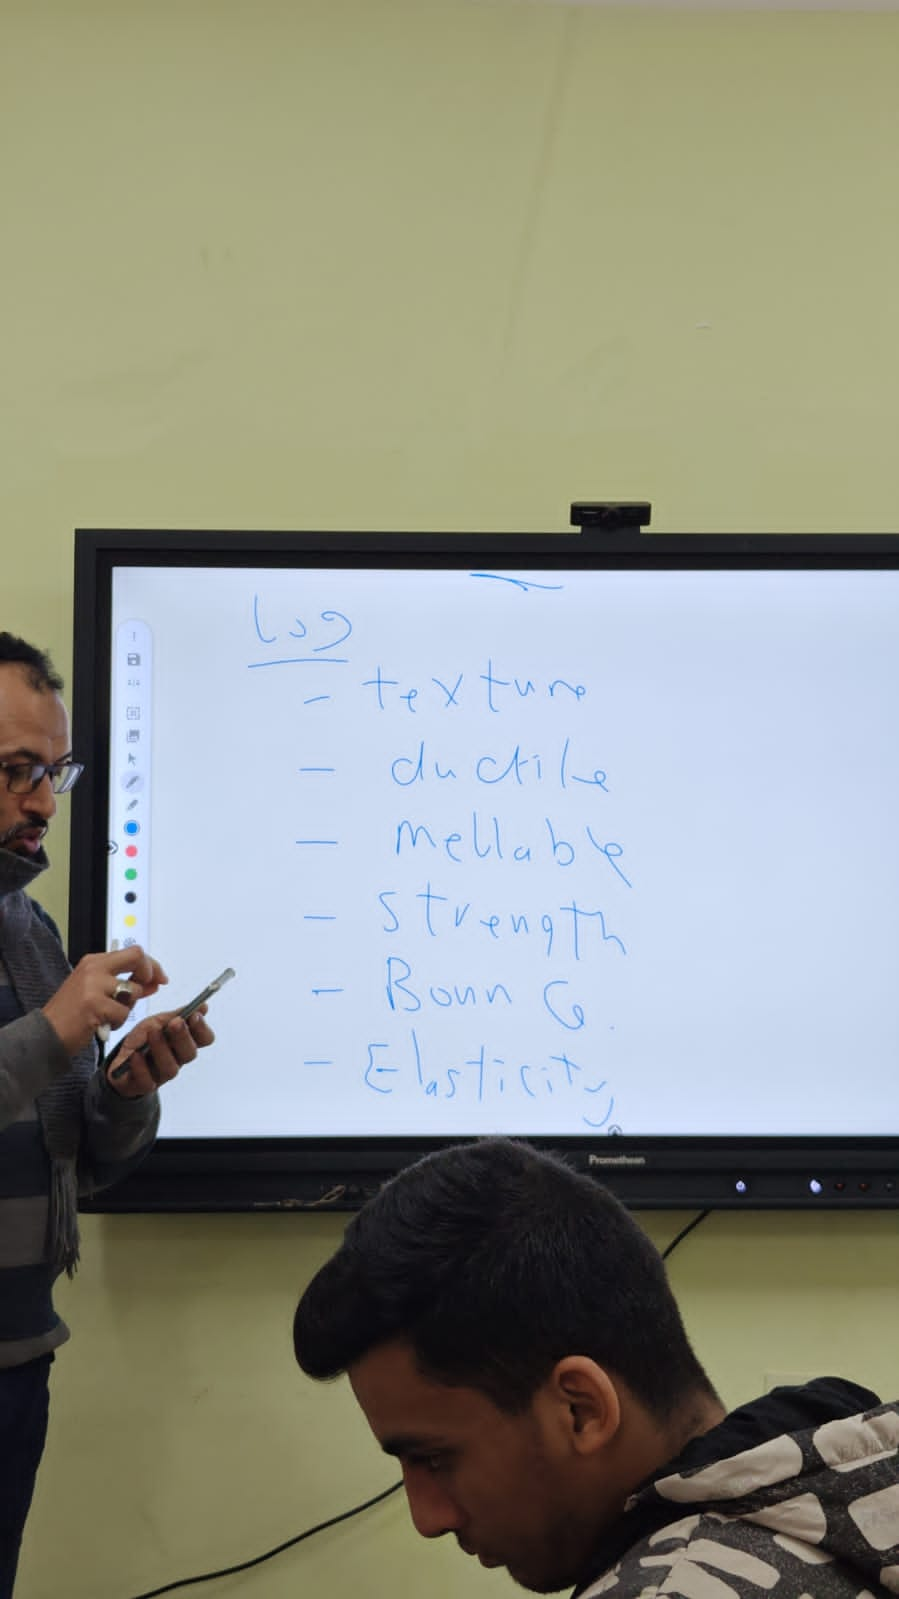 Log
- texture
- ductile
- mellable
- strength
- Boun G.
- Elasticity
Promethean